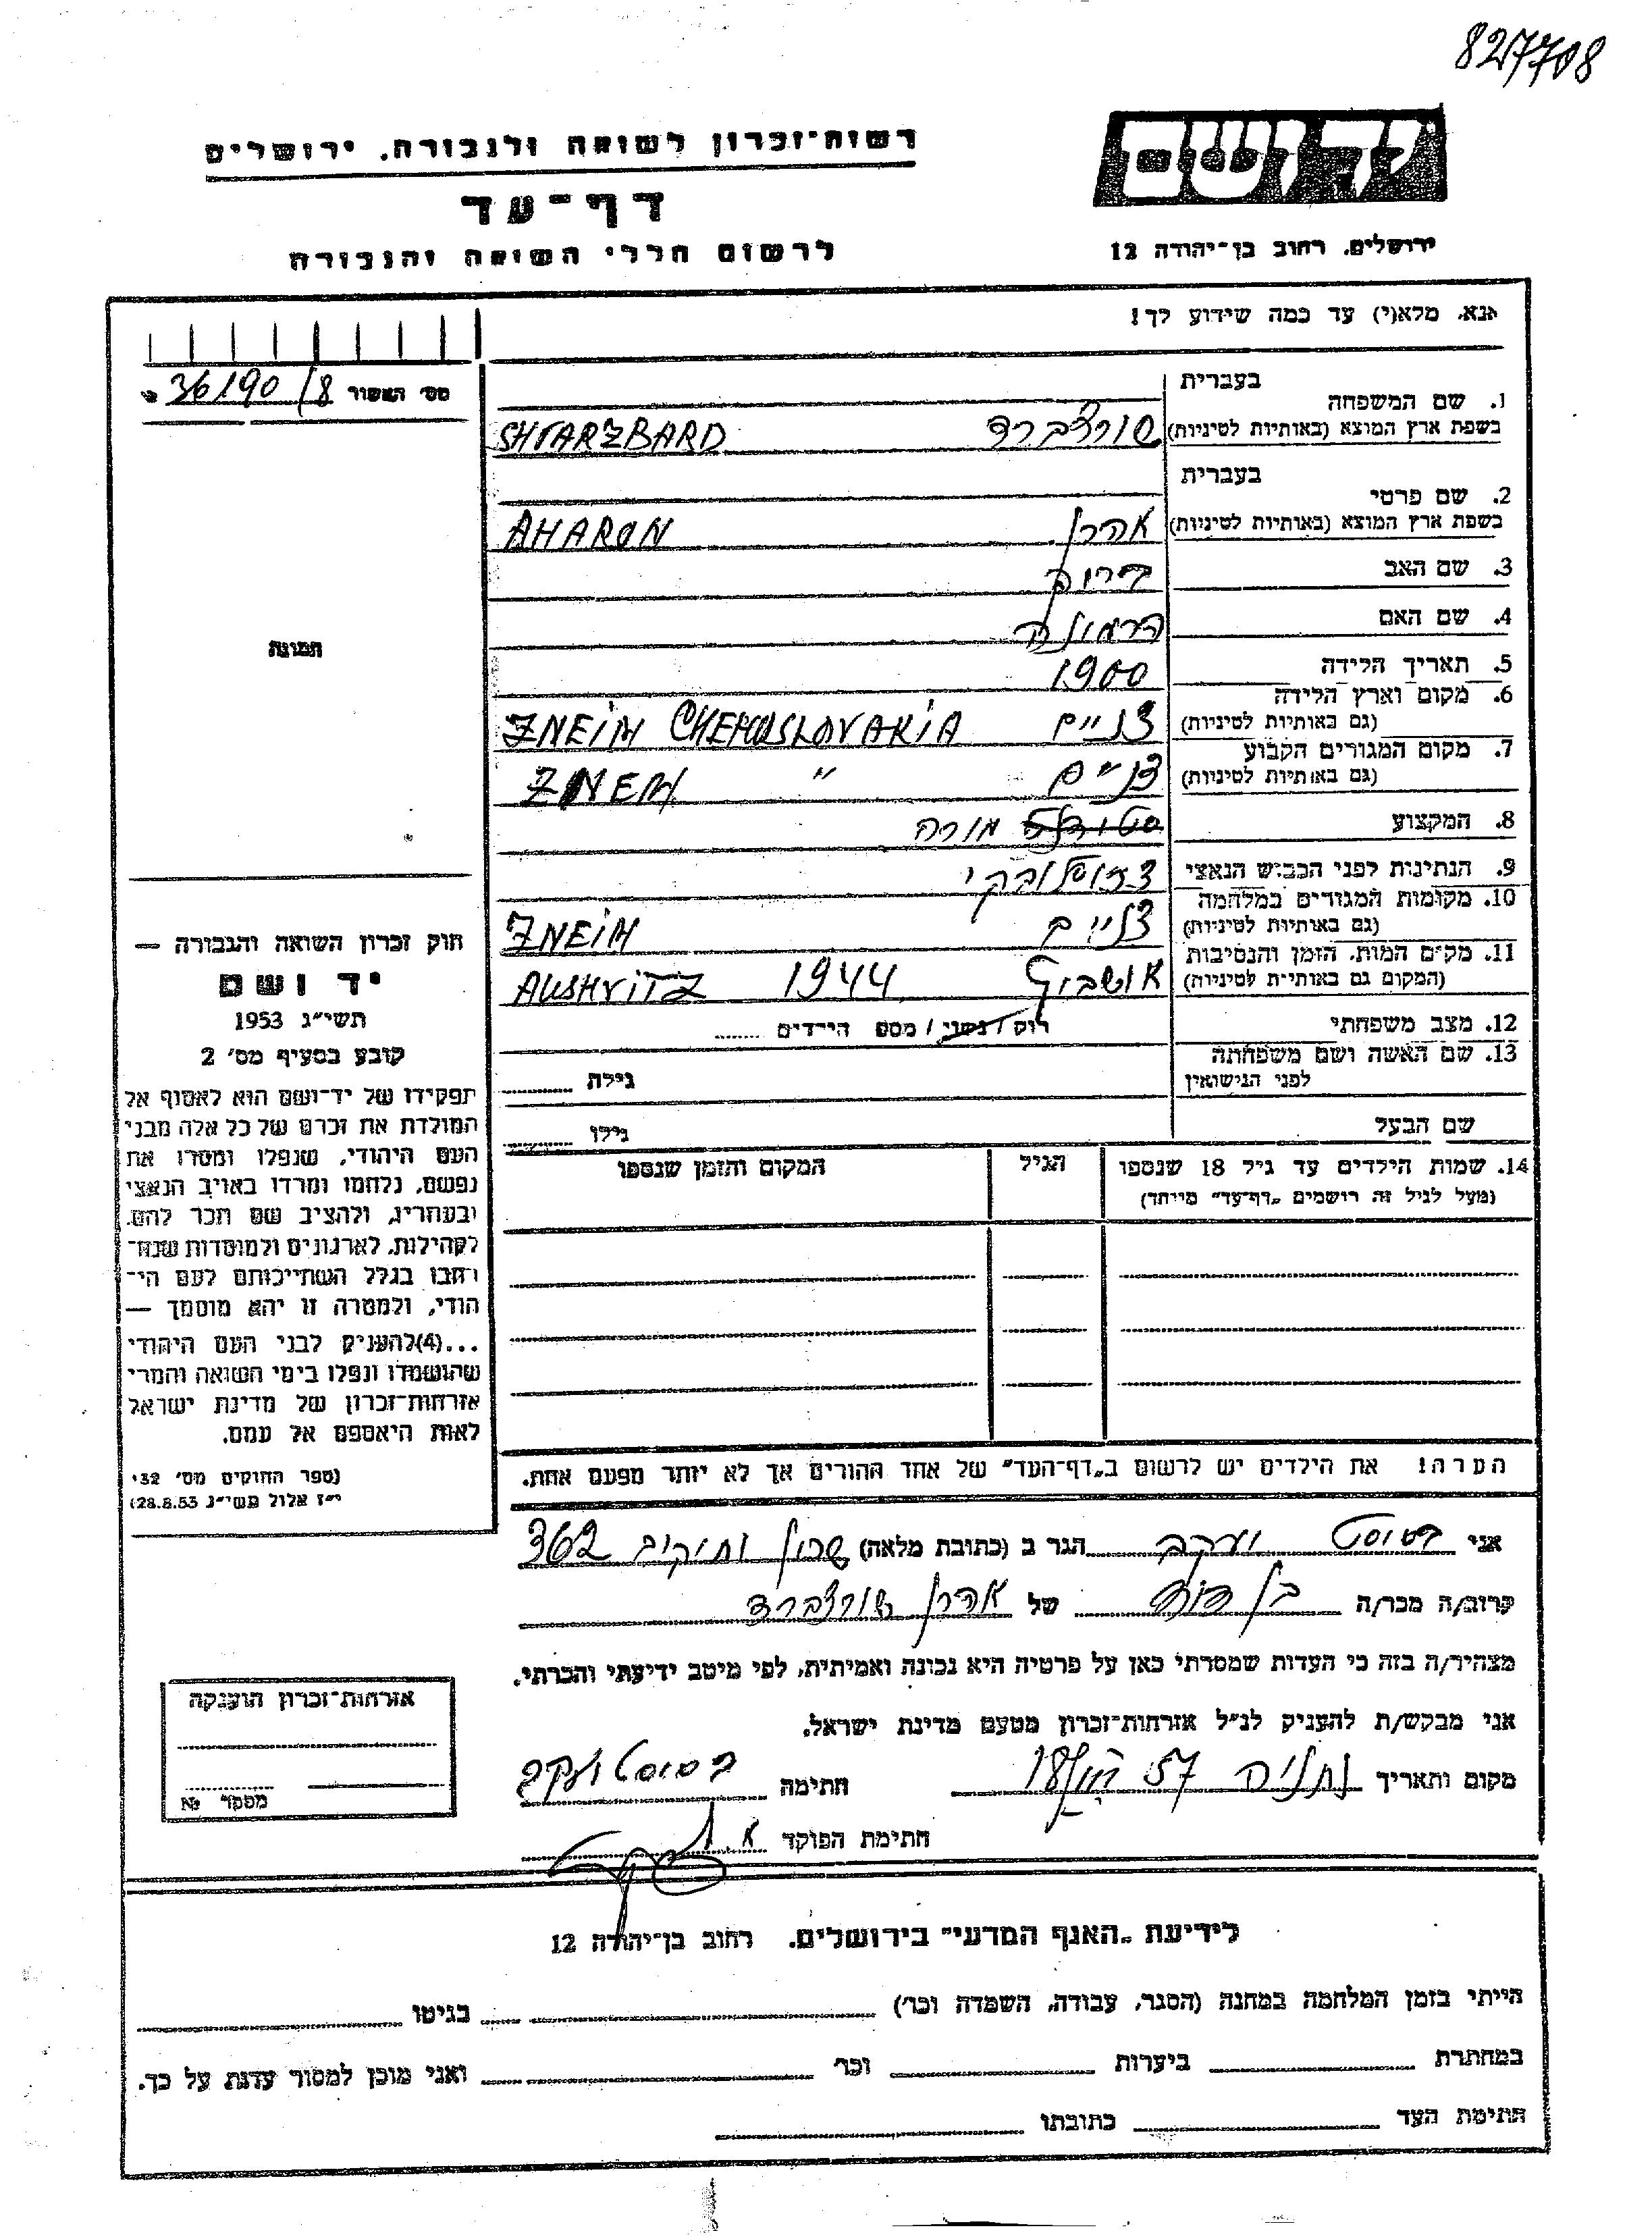 827708
רשות־זכרון לשואה ולגבורה, ירושלים
יד ושם
דף־עד
לרשום חללי השואה והגבורה
ירושלים, רחוב בן־יהודה 12
אנא, מלא(י) עד כמה שידוע לך!
מס׳ האשור 36190/8
1. שם המשפחה
בעברית
בשפת ארץ המוצא (באותיות לטיניות) שורצברד SHVARZBARD
2. שם פרטי
בעברית
בשפת ארץ המוצא (באותיות לטיניות) אהרן AHARON
3. שם האב ברוך
4. שם האם הרמינה
5. תאריך הלידה 1900
6. מקום וארץ הלידה
(גם באותיות לטיניות) צניים ZNEIM CHEHOSLOVAKIA
7. מקום המגורים הקבוע
(גם באותיות לטיניות) צניים " ZNEM
8. המקצוע מורה
9. הנתינות לפני הכבוש הנאצי
10. מקומות המגורים במלחמה
(גם באותיות לטיניות) צניים ZNEIM
11. מקום המות, הזמן והנסיבות
(המקום גם באותיות לטיניות) אושביץ 1944 AUSHVITZ
12. מצב משפחתי רווק / נשוי / מספ הילדים
13. שם האשה ושם משפחתה
לפני הנישואין גילה
שם הבעל גילו
14. שמות הילדים עד גיל 18 שנספו
(מעל לגיל זה רושמים „דף־עד" מיוחד)
הגיל
המקום והזמן שנספו
תמונה
חוק זכרון השואה והגבורה —
יד ושם
תשי״ג 1953
קובע בסעיף מס׳ 2
תפקידו של יד־ושם הוא לאסוף אל
המולדת את זכרם של כל אלה מבני
העם היהודי, שנפלו ומסרו את
נפשם, נלחמו ומרדו באויב הנאצי
ובעוזריו, ולהציב שם וזכר להם,
לקהילות, לארגונים ולמוסדות שנח־
רבו בגלל השתייכותם לעם הי־
הודי, ולמטרה זו יהא מוסמך —
...(4)להעניק לבני העם היהודי
שהושמדו ונפלו בימי השואה והמרי
אזרחות־זכרון של מדינת ישראל
לאות היאספם אל עמם.
(ספר החוקים מס׳ 132
י״ז אלול תשי״ג 28.8.53)
הערה! את הילדים יש לרשום ב„דף־העד" של אחד ההורים אך לא יותר מפעם אחת.
אני יעקב הגר ב (כתובת מלאה) 362
קרוב/ה מכר/ה בן דוד של אהרן שורצברד
מצהיר/ה בזה כי העדות שמסרתי כאן על פרטיה היא נכונה ואמיתית, לפי מיטב ידיעתי והכרתי.
אני מבקש/ת להעניק לנ״ל אזרחות־זכרון מטעם מדינת ישראל.
מקום ותאריך נתניה 57 חתימה יעקב
חתימת הפוקד
אזרחות־זכרון הוענקה
מספר №
לידיעת „האגף המדעי" בירושלים. רחוב בן־יהודה 12
הייתי בזמן המלחמה במחנה (הסגר, עבודה, השמדה וכו׳) בגיטו
במחתרת ביערות וכו׳ ואני מוכן למסור עדות על כך.
חתימת העד כתובתו